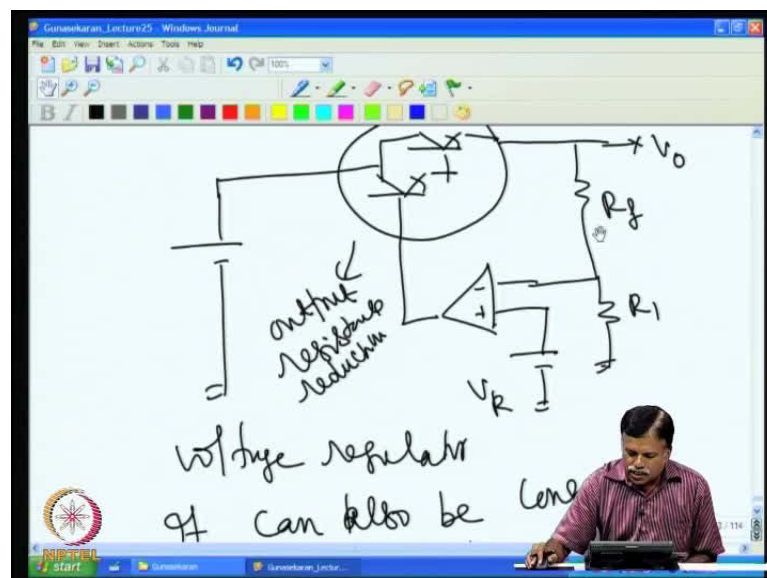 Gunasekaran_Lecture25 - Windows Journal
File Edit View Insert Actions Tools Help
100%
B I
V0
Rf
R1
- +
VR
output
resistance
reduction
voltage regulator
It can also be
/ 114
NPTEL
start
Gunasekaran
Gunasekaran_Lectur...